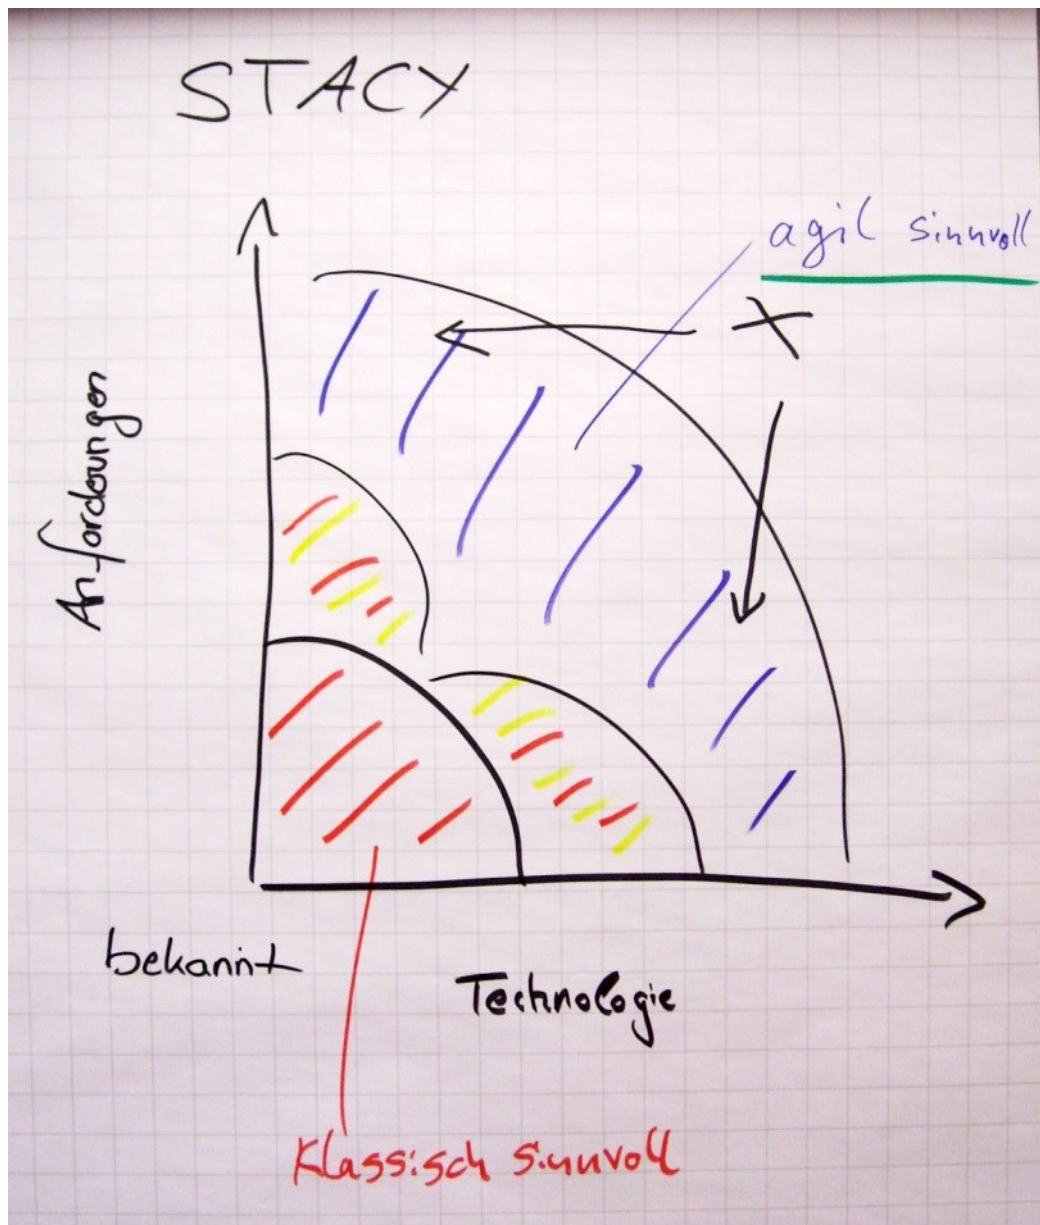 STACY
agil sinnvoll
X
Anforderungen
bekannt
Technologie
Klassisch sinnvoll